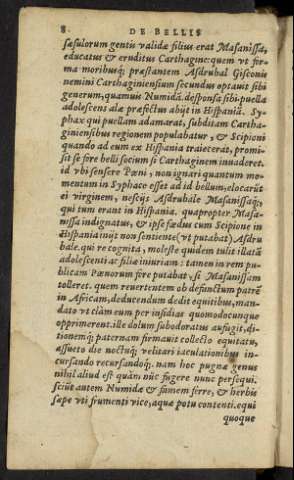 8 DE BELLIS
sæsulorum gentis validæ filius erat Masanissa,
educatus & eruditus Carthagine: quem vt for
ma moribusq; præstantem Asdrubal Gisconis
nemini Carthaginiensium secundus optauit sibi
generum, quamuis Numidã. desponsa sibi puella
adolescens alæ præfectus abijt in Hispaniã. Sy-
phax qui puellam adamarat, subditam Cartha-
giniensibus regionem populabatur, & Scipioni
quando ad eum ex Hispania traiecerat, promi-
sit se fore belli socium si Carthaginem inuaderet.
id vbi sensere Pœni, non ignari quantum mo-
mentum in Syphace esset ad id bellum, elocarũt
ei virginem, nescijs Asdrubale Masanissaq;,
qui tum erant in Hispania. quapropter Masa-
nissa indignatus, & ipse fœdus cum Scipione in
Hispania inijt non sentiente (vt putabat) Asdru
bale. qui re cognita, moleste quidem tulit illatã
adolescenti ac filiæ iniuriam: tamen in rem pu-
blicam Pœnorum fore putabat, si Masanissam
tolleret. quem reuertentem ob defunctum patrẽ
in Africam, deducendum dedit equitibus, man-
dato vt clàm eum per insidias quomodocunque
opprimerent. ille dolum subodoratus aufugit, di-
tionemq; paternam firmauit collecto equitatu,
assueto die noctuq; velitari iaculationibus in-
cursando recursandoq;. nam hoc pugnæ genus
nihil aliud est quàm nũc fugere nunc persequi.
sciũt autem Numidæ & famem ferre, & herbis
sæpe vti frumenti vice, aquæ potu contenti. equi
quoque